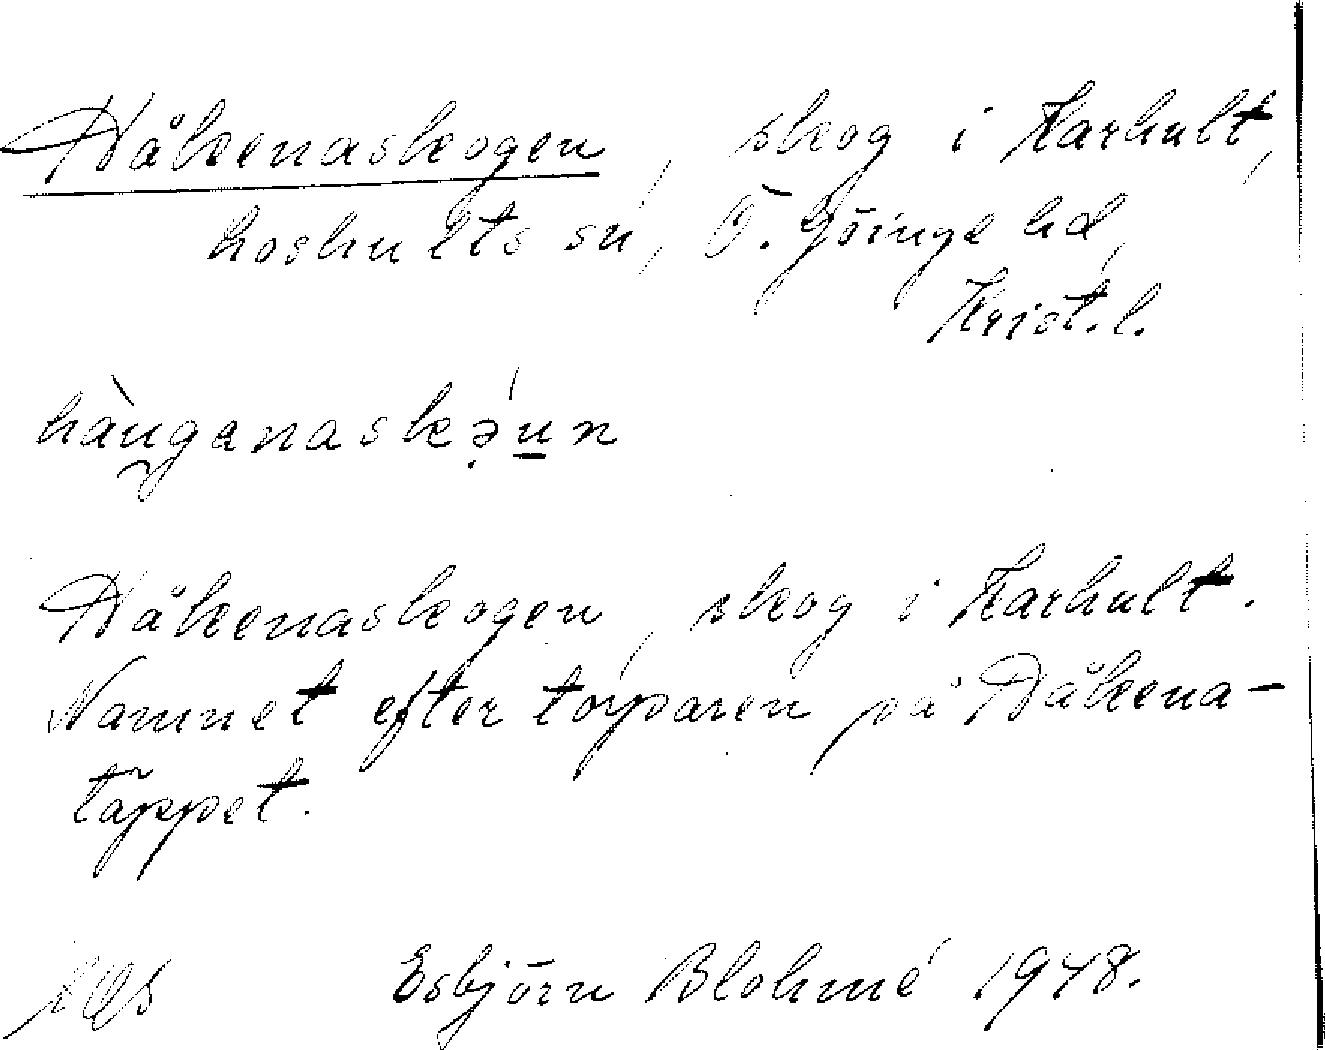 Håkenaskogen, skog i Harhult,
hoshults sn, Ö. Göinge hd,
Krist. l.
Håkenaskogen, skog i Harhult.
Namnet efter torparen på Håkena-
täppet.
Esbjörn Blohmé 1948.